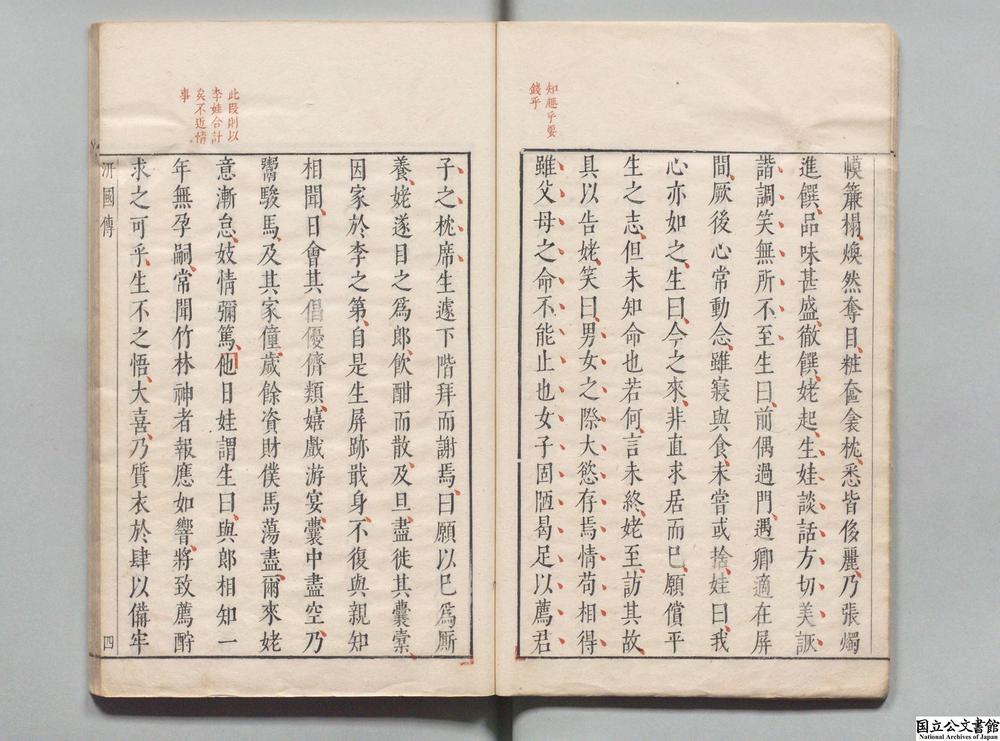 知趣乎要
錢乎
幙簾榻煥然奪目粧奩衾枕悉皆侈麗乃張燭
進饌品味甚盛徹饌姥起生娃談話方切美詼
諧調笑無所不至生曰前偶過門遇卿適在屏
間厥後心常動念雖寢與食未嘗或捨娃曰我
心亦如之生曰今之來非直求居而已願償平
生之志但未知命也若何言未終姥至訪其故
具以告姥笑曰男女之際大慾存焉情苟相得
雖父母之命不能止也女子固陋曷足以薦君
此段則以
李娃合計
矣不近情
事
子之枕席生遽下階拜而謝焉曰願以已爲厮
養姥遂目之爲郎飲酣而散及旦盡徙其囊槖
因家於李之第自是生屏跡戢身不復與親知
相聞日會其倡優儕類嬉戲游宴囊中盡空乃
鬻駿馬及其家僮歲餘資財僕馬蕩盡爾來姥
意漸怠妓情彌篤他日娃謂生曰與郎相知一
年無孕嗣常聞竹林神者報應如響將致薦酹
求之可乎生不之悟大喜乃質衣於肆以備牢
汧國傳
四
国立公文書館
National Archives of Japan